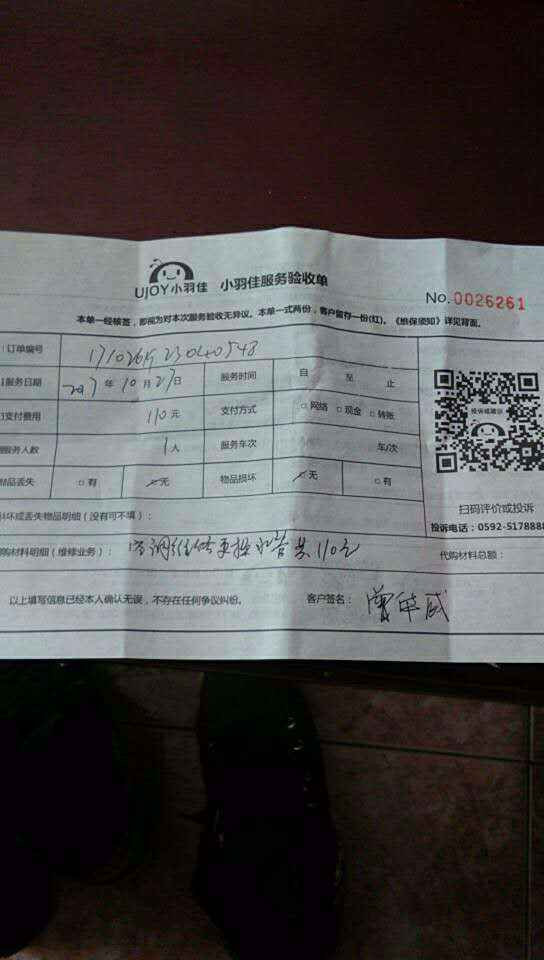 UJOY小羽佳 小羽佳服务验收单
No.0026261
本单一经核签，即视为对本次服务验收无异议。本单一式两份，客户留存一份(红)。《维保须知》详见背面。
订单编号
服务日期 2017年10月27日 服务时间 自 至 止
支付费用 110元 支付方式 □网络 □现金 □转账
服务人数 1人 服务车次 车/次
物品丢失 □有 ☑无 物品损坏 ☑无 □有
投诉或建议
扫码评价或投诉
投诉电话：0592-5178888
损坏或丢失物品明细（没有可不填）：
购材料明细（维修业务）：空调维修更换水管共110元 代购材料总额：
以上填写信息已经本人确认无误，不存在任何争议纠纷。 客户签名：